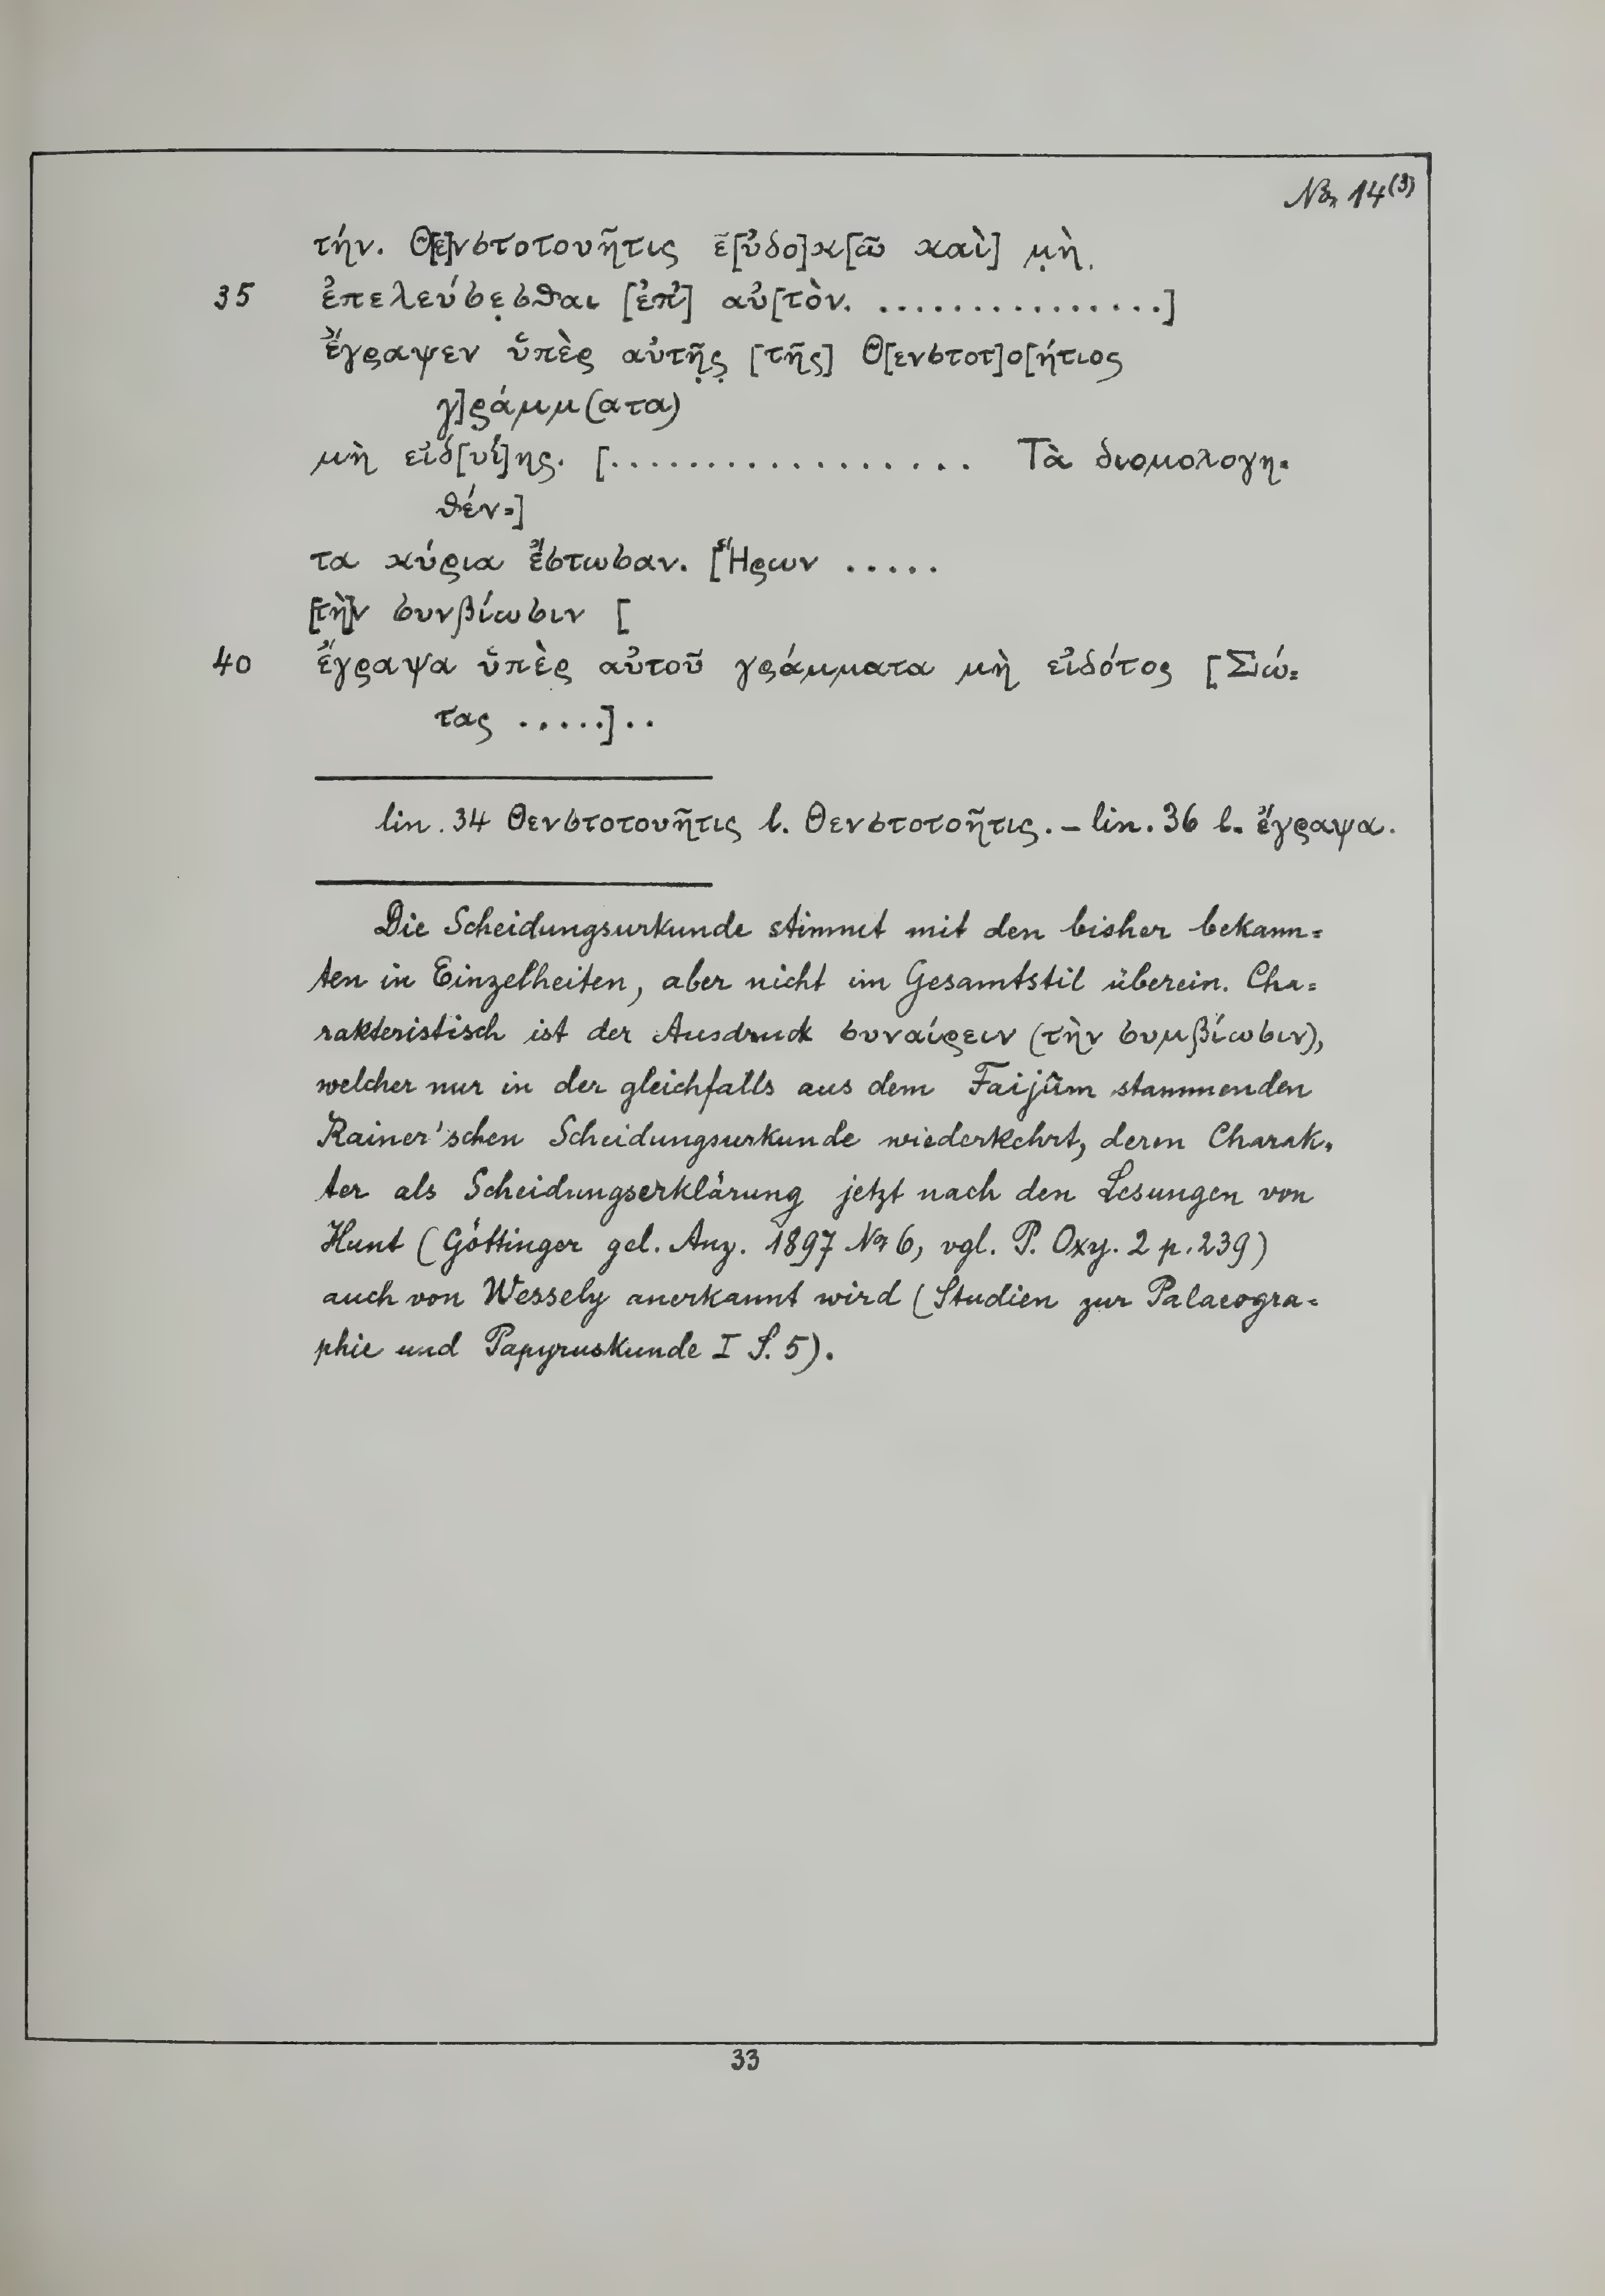 No 14(3)
τήν. Θ[ε]νστοτουῆτις ἐ[ὐδο]κ[ῶ καὶ] μ̣ὴ̣
35 ἐπελεύσε̣σθαι [ἐπ'] αὐ[τὸν. ...............]
Ἔγραψεν ὑπὲρ αὐτῆ̣ς̣ [τῆς] Θ[ενστοτ]ο[ήτιος
γ]ράμμ(ατα)
μὴ εἰδ[υί]ης. [................. Τὰ διομολογη=
θέν=]
τα κύρια ἔστωσαν. [Ἥρων .....
[τὴ]ν συνβίωσιν [
40 ἔγραψα ὑπὲρ αὐτοῦ γράμματα μὴ εἰδότος [Σιώ=
τας .....]..
lin. 34 Θενστοτουῆτις l. Θενστοτοῆτις. – lin. 36 l. ἔγραψα.
Die Scheidungsurkunde stimmt mit den bisher bekann=
ten in Einzelheiten, aber nicht im Gesamtstil überein. Cha=
rakteristisch ist der Ausdruck συναίρειν (τὴν συμβίωσιν),
welcher nur in der gleichfalls aus dem Faijûm stammenden
Rainer'schen Scheidungsurkunde wiederkehrt, deren Charak=
ter als Scheidungserklärung jetzt nach den Lesungen von
Hunt (Göttinger gel. Anz. 1897 No 6, vgl. P. Oxy. 2 p. 239)
auch von Wessely anerkannt wird (Studien zur Palaeogra=
phie und Papyruskunde I S. 5).
33